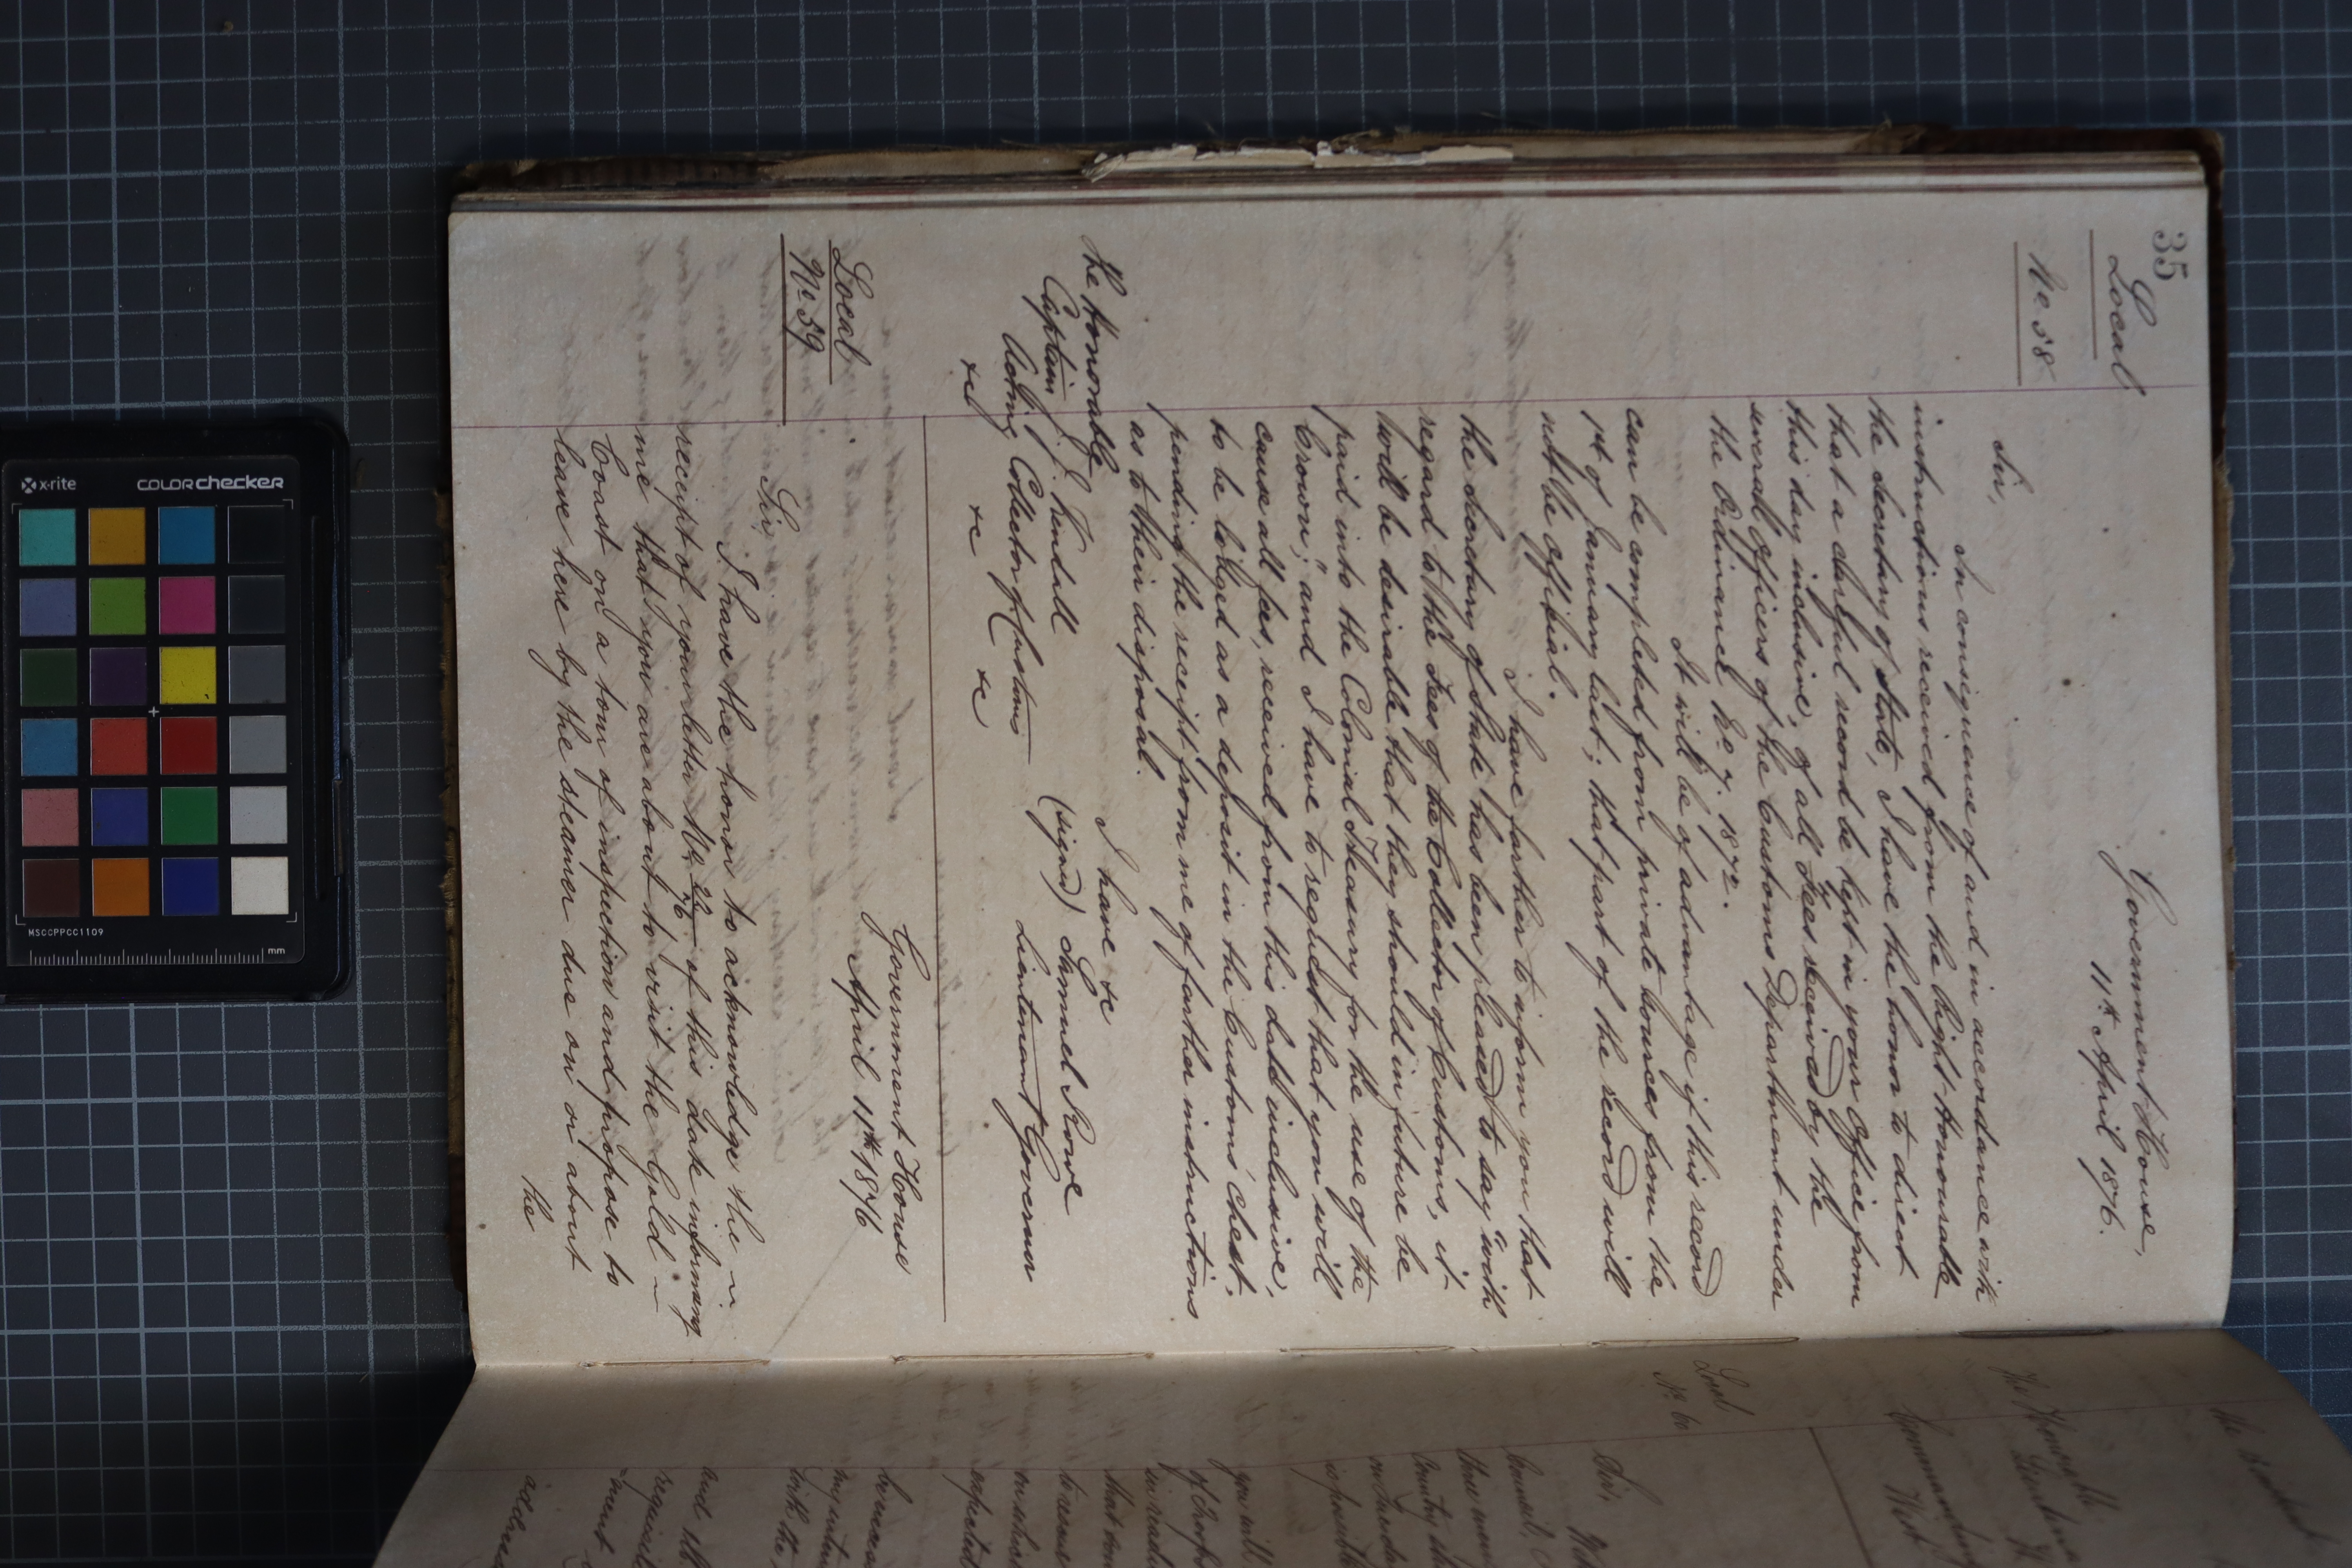 35
Local
No 58
Government House,
11th April 1876.
Sir,
In consequence of and in accordance with
instructions received from the Right Honourable
the Secretary of State, I have the honor to direct
that a careful record be kept in your Office from
this day inclusive, of all Fees received by the
several officers of the Customs Department under
the Ordinance No 7. 1872.
It will be of advantage if this record
can be completed from private sources from the
1st of January last; that part of the record will
not be official.
I have farther to inform you that
the Secretary of State has been pleased to say "with
regard to the Fees of the Collector of Customs, it
will be desirable that they should in future be
paid into the Colonial Treasury for the use of the
Crown," and I have to request that you will
cause all fees, received from this date inclusive,
to be lodged as a deposit in the Customs' chest,
pending the receipt from me of farther instructions
as to their disposal.
I have &c
(signed) Samuel Rowe
Lieutenant Governor
The Honorable
Captain J. Kendall
Acting Collector of Customs
&c &c &c
Local
No 59
Government House
April 11th 1876
Sir,
I have the honor to acknowledge the
receipt of your letter No 22/76 of this date informing
me that you are about to visit the Gold
Coast on a tour of inspection and propose to
leave here by the steamer due on or about
the
The Honorable
Commanding
West
Local
No 60
Sir,
Council,
you will
that
my
with the
and